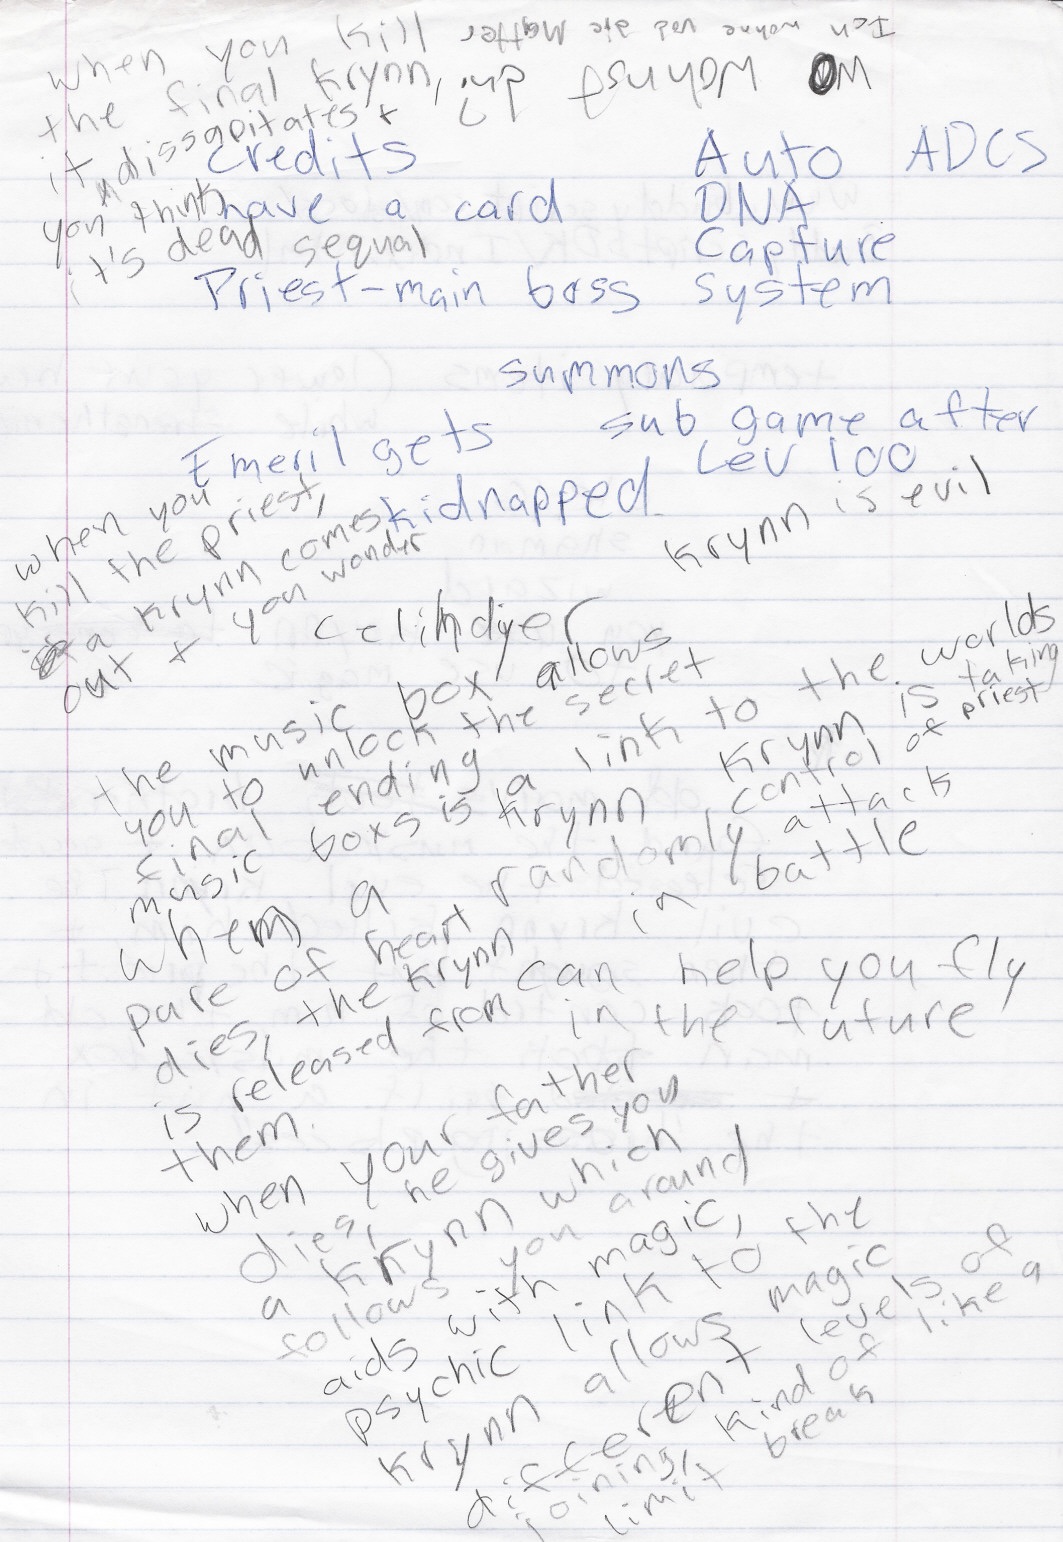 when you kill
the final Krynn,
it dissapitates +
you think
it's dead sequal
Ich wohne
Wo wohnst du?
credits
have a card
Priest-main boss
Auto ADCS
DNA
Capture
System
summons
sub game after
Lev 100
Emeril gets
kidnapped
Krynn is evil
when you
kill the priest,
a Krynn comes
out + you wonder
the music box allows
you to unlock the secret
final ending
music boxs is a link to the worlds
Krynn
Krynn is taking
control of priest
randomly attack
in battle
When a
pure of heart
dies, the Krynn
is released from
them.
can help you fly
in the future
when your father
dies, he gives you
a Krynn which
follows you around
aids with magic,
psychic link to the
Krynn allows magic
different levels of
joining, kind of like a
limit break